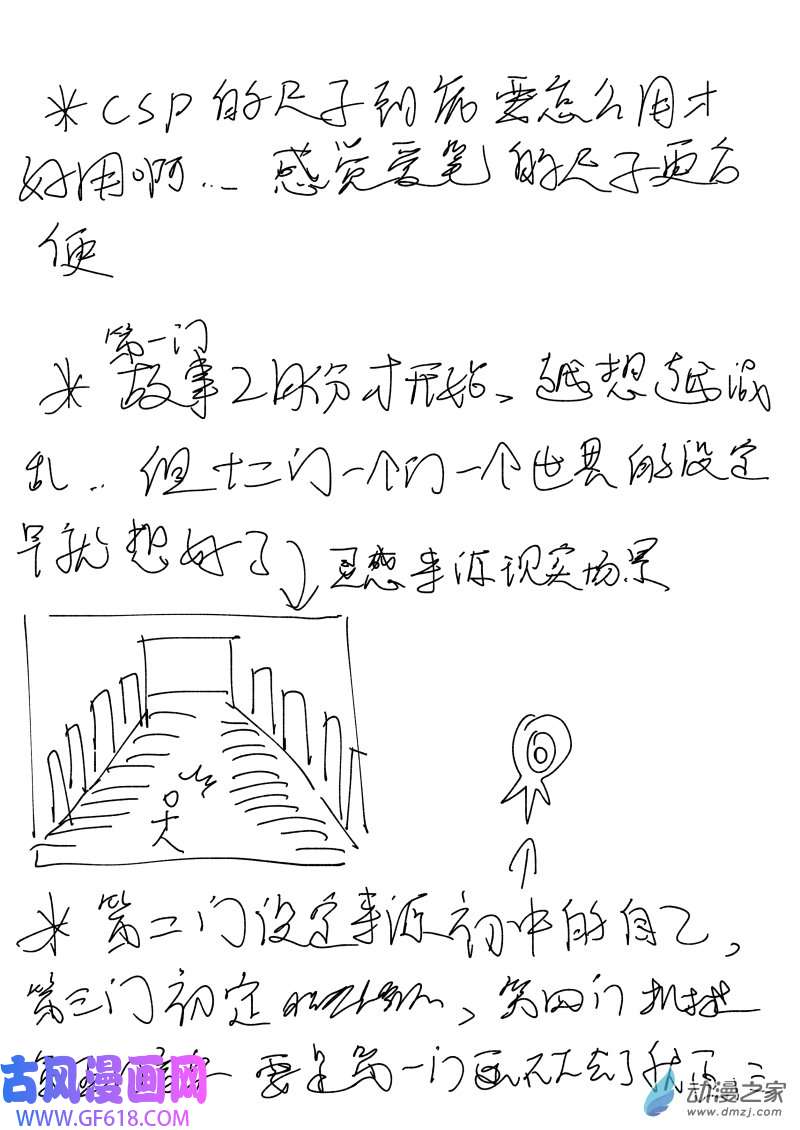 *CSP的尺子到底要怎么用才
好用啊... 感觉爱笔的尺子更方
便
第一门
*故事2月份才开始、越想越混
乱.. 但十二门一个门一个世界的设定
早就想好了
灵感来源现实场景
*第二门设定来源初中的自己,
第三门初定、第四门
要是第一门画不下去了我
古风漫画网
WWW.GF618.COM
动漫之家
www.dmzj.com